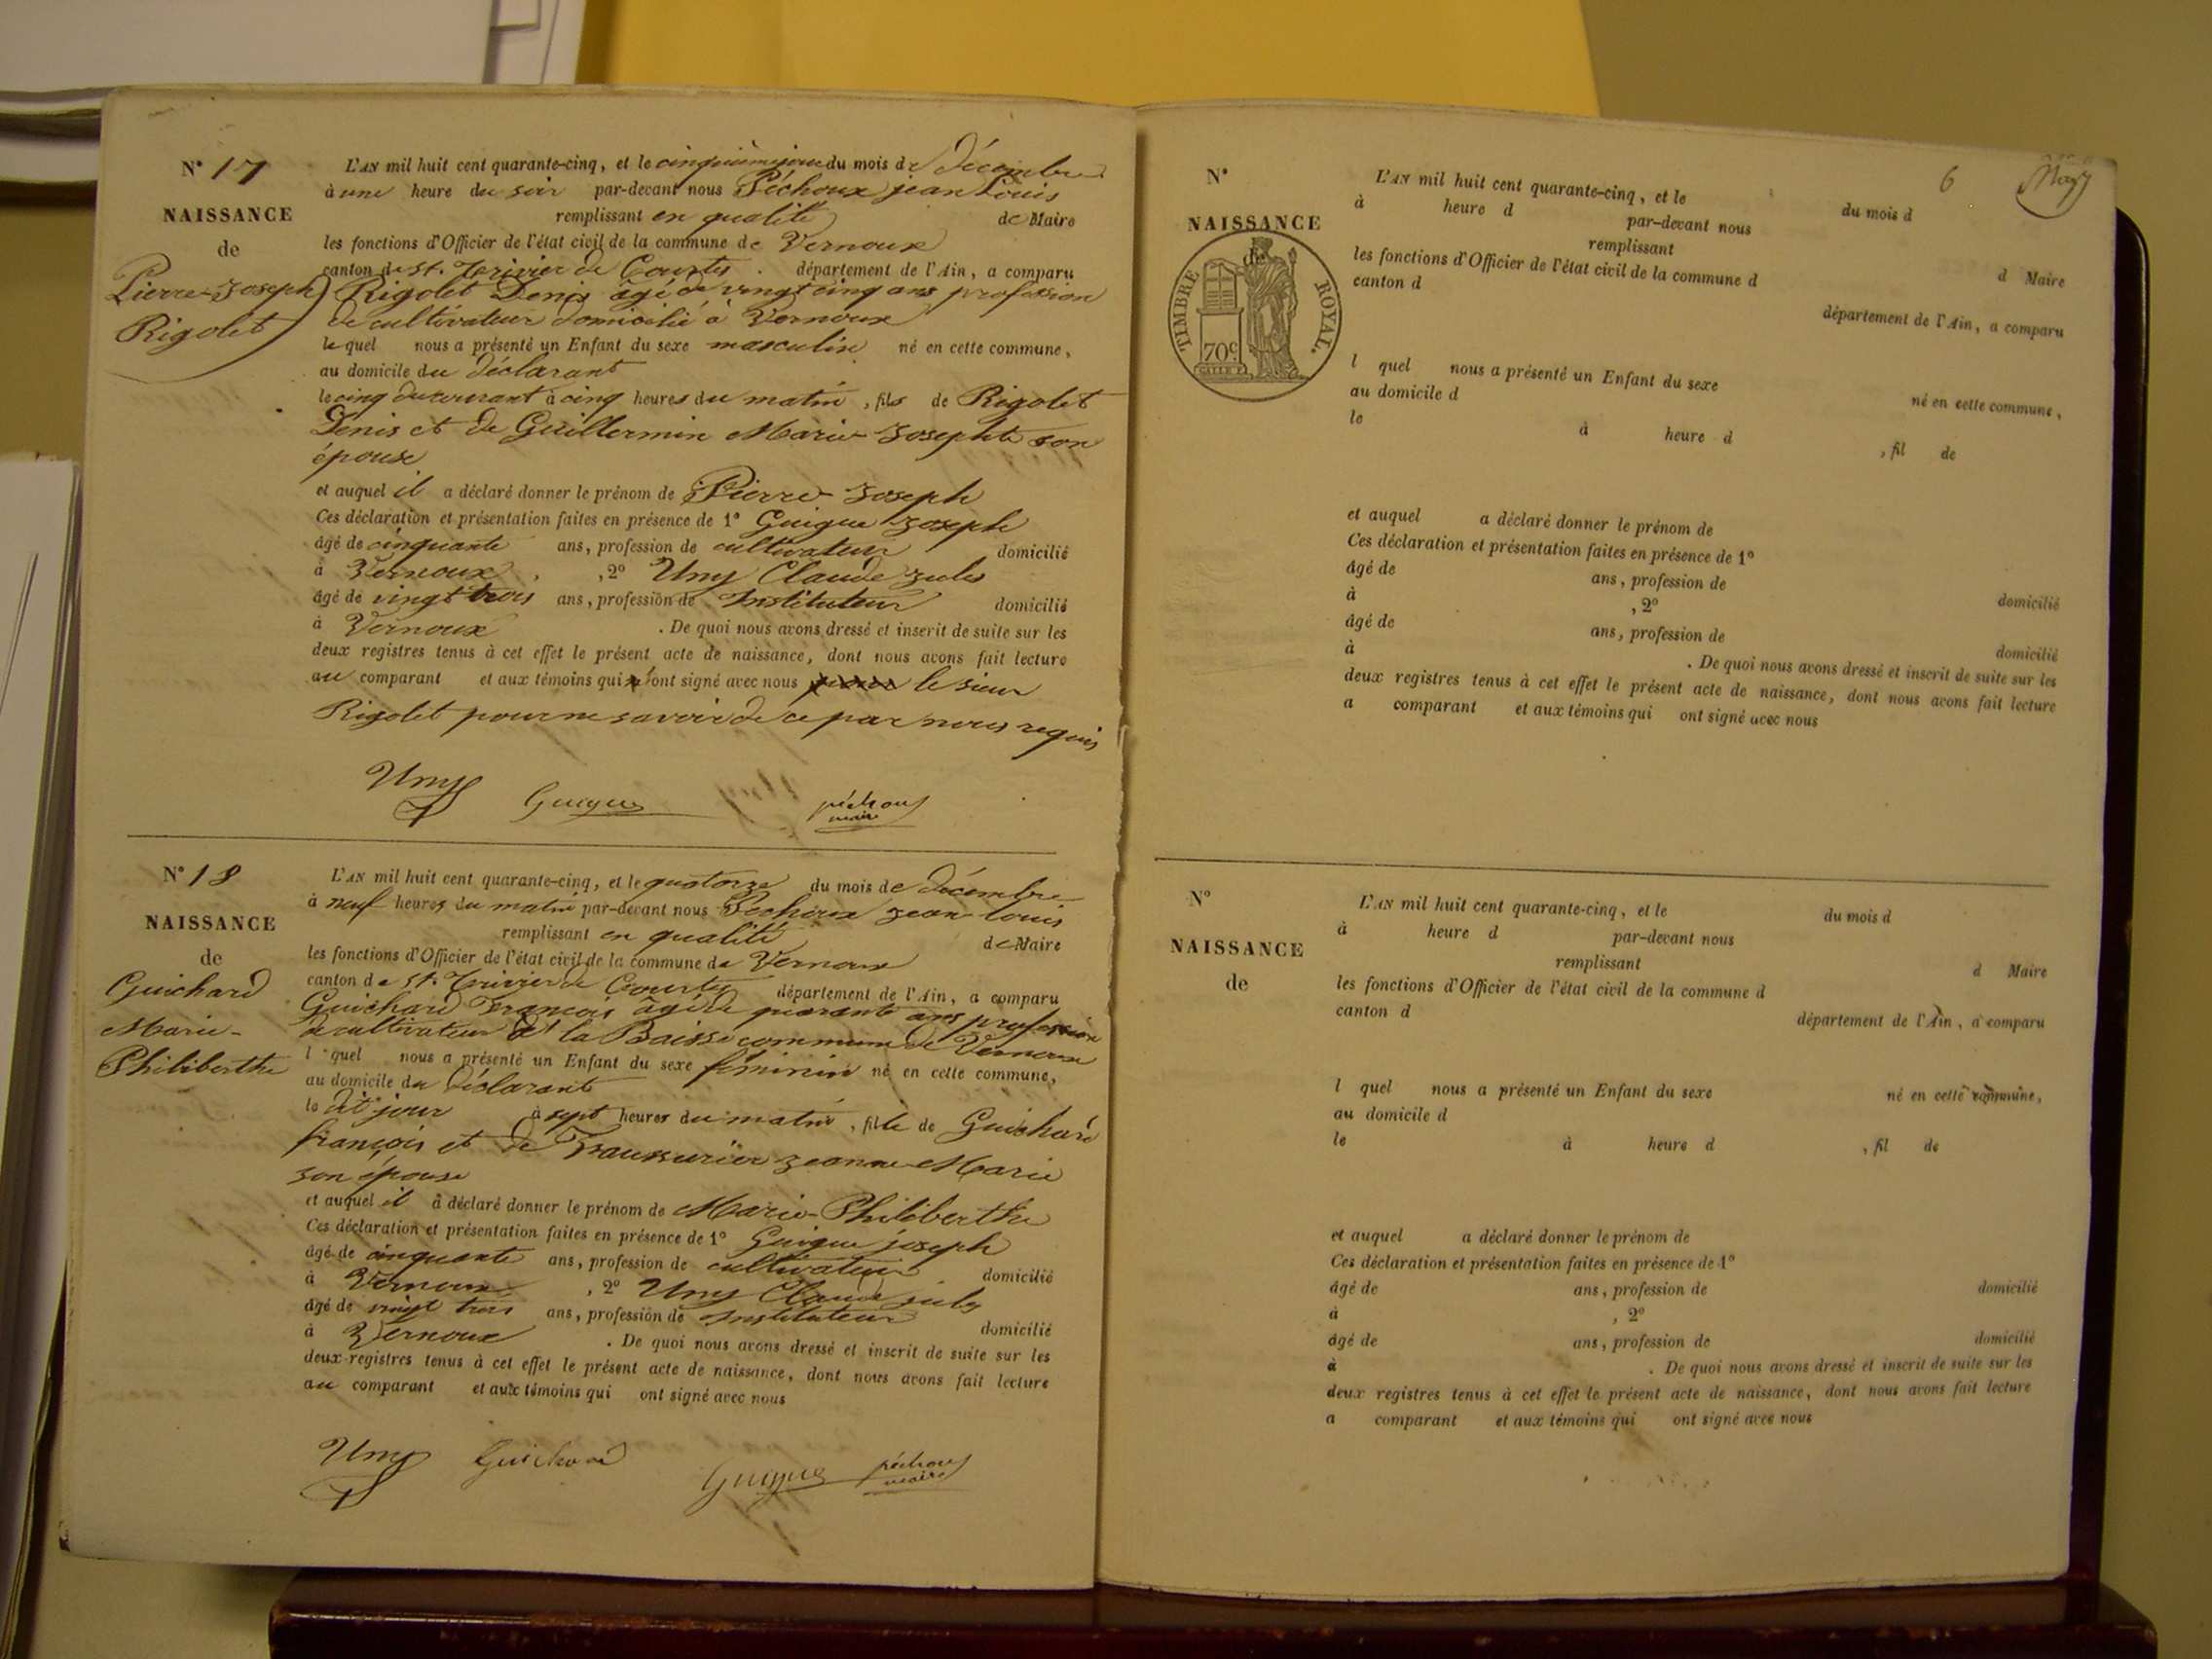 N° 17
NAISSANCE
de
Pierre-Joseph
Rigolet
L'AN mil huit cent quarante-cinq, et le cinquième jour du mois de décembre
à une heure du soir par-devant nous Péchoux jean Louis
remplissant en qualité de Maire
les fonctions d'Officier de l'état civil de la commune de Vernoux
canton de St. Trivier de Courtes. département de l'Ain, a comparu
Rigolet Denis âgé de vingt cinq ans profession
de cultivateur domicilié à Vernoux
lequel nous a présenté un Enfant du sexe masculin né en cette commune,
au domicile du déclarant
le cinq du courant à cinq heures du matin, fils de Rigolet
Denis et de Guillermin Marie-Josephte son
épouse
et auquel il a déclaré donner le prénom de Pierre-Joseph
Ces déclaration et présentation faites en présence de 1° Guigue Joseph
âgé de cinquante ans, profession de cultivateur domicilié
à Vernoux, 2° Uny Claude Jules
âgé de vingt trois ans, profession de Instituteur domicilié
à Vernoux. De quoi nous avons dressé et inscrit de suite sur les
deux registres tenus à cet effet le présent acte de naissance, dont nous avons fait lecture
au comparant et aux témoins qui ont signé avec nous le sieur
Rigolet pour ne savoir de ce par nous requis
Uny Guigue péchoux
maire
N° 18
NAISSANCE
de
Guichard
Marie-
Philiberthe
L'AN mil huit cent quarante-cinq, et le quatorze du mois de décembre
à neuf heures du matin par-devant nous Péchoux jean louis
remplissant en qualité de Maire
les fonctions d'Officier de l'état civil de la commune de Vernoux
canton de St. Trivier de Courtes département de l'Ain, a comparu
Guichard François âgé de quarante ans profession
de cultivateur à la Baisse commune de Vernoux
l quel nous a présenté un Enfant du sexe féminin né en cette commune,
au domicile du déclarant
le dit jour à sept heures du matin, fille de Guichard
françois et de Jeanne-Marie
son épouse
et auquel il a déclaré donner le prénom de Marie-Philiberthe
Ces déclaration et présentation faites en présence de 1° Guigue joseph
âgé de cinquante ans, profession de cultivateur domicilié
à Vernoux, 2° Uny Claude jules
âgé de vingt trois ans, profession de Instituteur domicilié
à Vernoux. De quoi nous avons dressé et inscrit de suite sur les
deux registres tenus à cet effet le présent acte de naissance, dont nous avons fait lecture
au comparant et aux témoins qui ont signé avec nous
Uny Guichard Guigue péchoux
maire
6
N°
NAISSANCE
de
TIMBRE ROYAL.
70c
L'AN mil huit cent quarante-cinq, et le du mois d
à heure d par-devant nous
remplissant d Maire
les fonctions d'Officier de l'état civil de la commune d
canton d département de l'Ain, a comparu
l quel nous a présenté un Enfant du sexe né en cette commune,
au domicile d
le à heure d , fil de
et auquel a déclaré donner le prénom de
Ces déclaration et présentation faites en présence de 1°
âgé de ans, profession de domicilié
à , 2°
âgé de ans, profession de domicilié
à . De quoi nous avons dressé et inscrit de suite sur les
deux registres tenus à cet effet le présent acte de naissance, dont nous avons fait lecture
a comparant et aux témoins qui ont signé avec nous
N°
NAISSANCE
de
L'AN mil huit cent quarante-cinq, et le du mois d
à heure d par-devant nous
remplissant d Maire
les fonctions d'Officier de l'état civil de la commune d
canton d département de l'Ain, a comparu
l quel nous a présenté un Enfant du sexe né en cette commune,
au domicile d
le à heure d , fil de
et auquel a déclaré donner le prénom de
Ces déclaration et présentation faites en présence de 1°
âgé de ans, profession de domicilié
à , 2°
âgé de ans, profession de domicilié
à . De quoi nous avons dressé et inscrit de suite sur les
deux registres tenus à cet effet le présent acte de naissance, dont nous avons fait lecture
a comparant et aux témoins qui ont signé avec nous